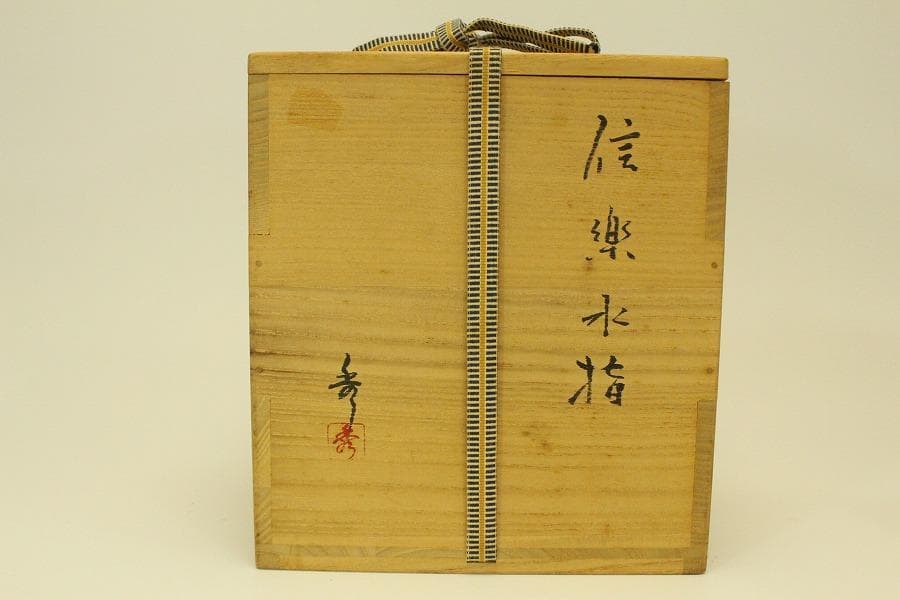 信樂水指
秀
秀